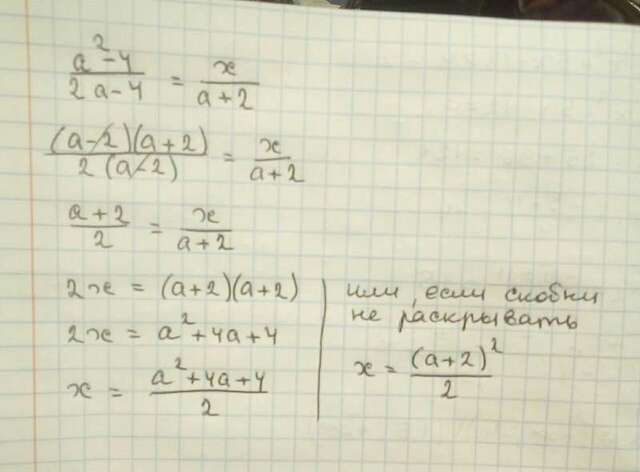 (a² - 4)/(2a - 4) = x/(a + 2)
((a - 2)(a + 2))/(2(a - 2)) = x/(a + 2)
(a + 2)/2 = x/(a + 2)
2x = (a + 2)(a + 2)
2x = a² + 4a + 4
x = (a² + 4a + 4)/2
или, если скобки
не раскрывать
x = (a + 2)²/2